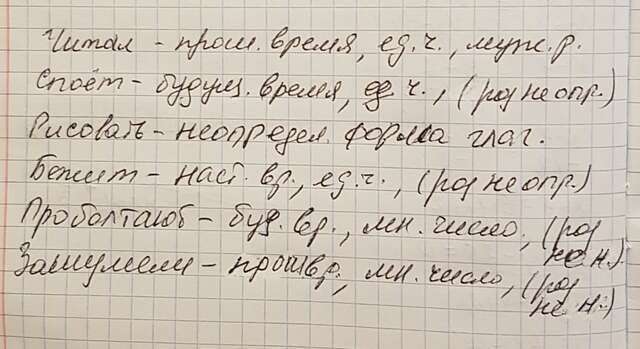 Читал - прош. время, ед.ч., муж.р.
Споёт - будущ. время, ед ч., (род не опр.)
Рисовать - неопредел. форма глаг.
Бежит - наст. вр., ед.ч., (род не опр.)
Проболтают - буд. вр., мн. число, (род не н.)
Зашумели - прош вр., мн. число, (род не н.)